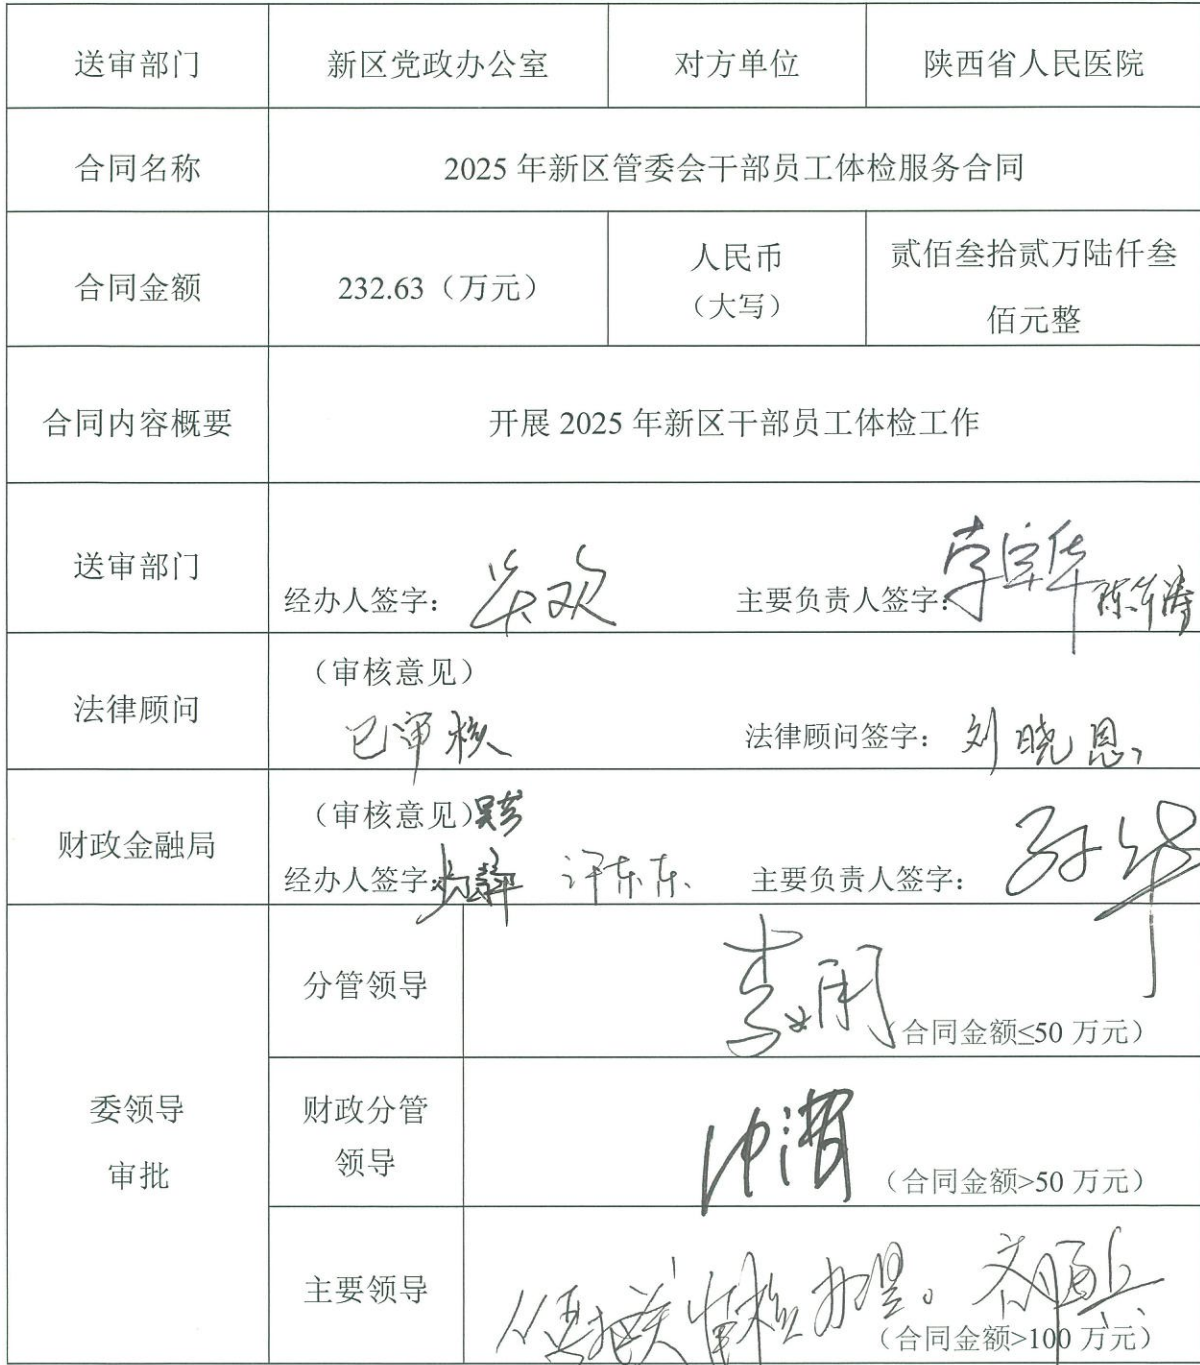 送审部门 新区党政办公室 对方单位 陕西省人民医院
合同名称 2025 年新区管委会干部员工体检服务合同
合同金额 232.63（万元） 人民币（大写） 贰佰叁拾贰万陆仟叁佰元整
合同内容概要 开展 2025 年新区干部员工体检工作
送审部门 经办人签字： 吴欢 主要负责人签字：
法律顾问 （审核意见）
已审核 法律顾问签字： 刘晓恩
财政金融局 （审核意见）
经办人签字： 许东东 主要负责人签字：
委领导
审批
分管领导 （合同金额≤50 万元）
财政分管
领导 （合同金额>50 万元）
主要领导 审核办理。
（合同金额>100 万元）